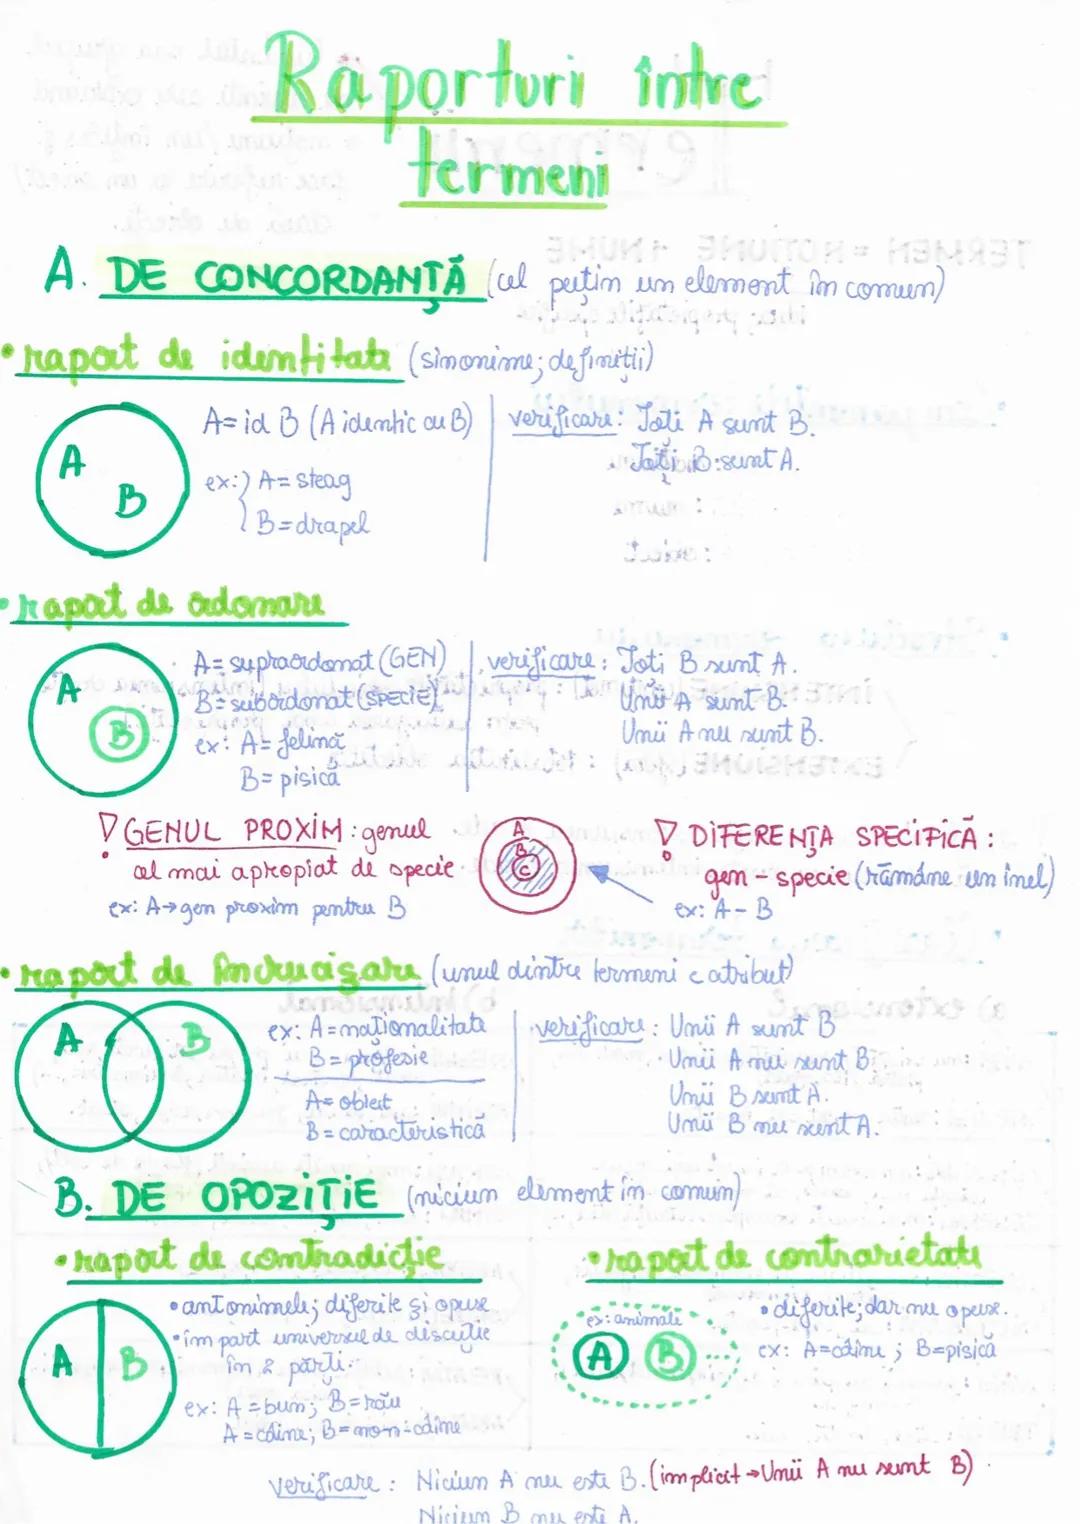 Raporturi între
termeni
A. DE CONCORDANȚĂ (cel puțin un element în comun)
• raport de identitate (sinonime; definiții)
A B
A = id B (A identic cu B)
ex: A = steag
B = drapel
verificare: Toți A sunt B.
Toți B sunt A.
• raport de ordonare
A B
A = supraordonat (GEN)
B = subordonat (SPECIE)
ex: A = felină
B = pisică
verificare: Toți B sunt A.
Unii A sunt B.
Unii A nu sunt B.
GENUL PROXIM: genul
cel mai apropiat de specie.
ex: A → gen proxim pentru B
A
B
C
DIFERENȚA SPECIFICĂ:
gen - specie (rămâne un inel)
ex: A - B
• raport de încrucișare (unul dintre termeni e atribut)
A B
ex: A = naționalitate
B = profesie
A = obiect
B = caracteristică
verificare: Unii A sunt B
Unii A nu sunt B.
Unii B sunt A.
Unii B nu sunt A.
B. DE OPOZIȚIE (niciun element în comun)
• raport de contradicție
A B
• antonimele; diferite și opuse
• împart universul de discuție
în 2 părți.
ex: A = bun; B = rău
A = câine; B = non-câine
• raport de contrarietate
ex: animale
A B
• diferite; dar nu opuse.
ex: A = câine; B = pisică
verificare: Niciun A nu este B. (implicit → Unii A nu sunt B)
Niciun B nu este A.